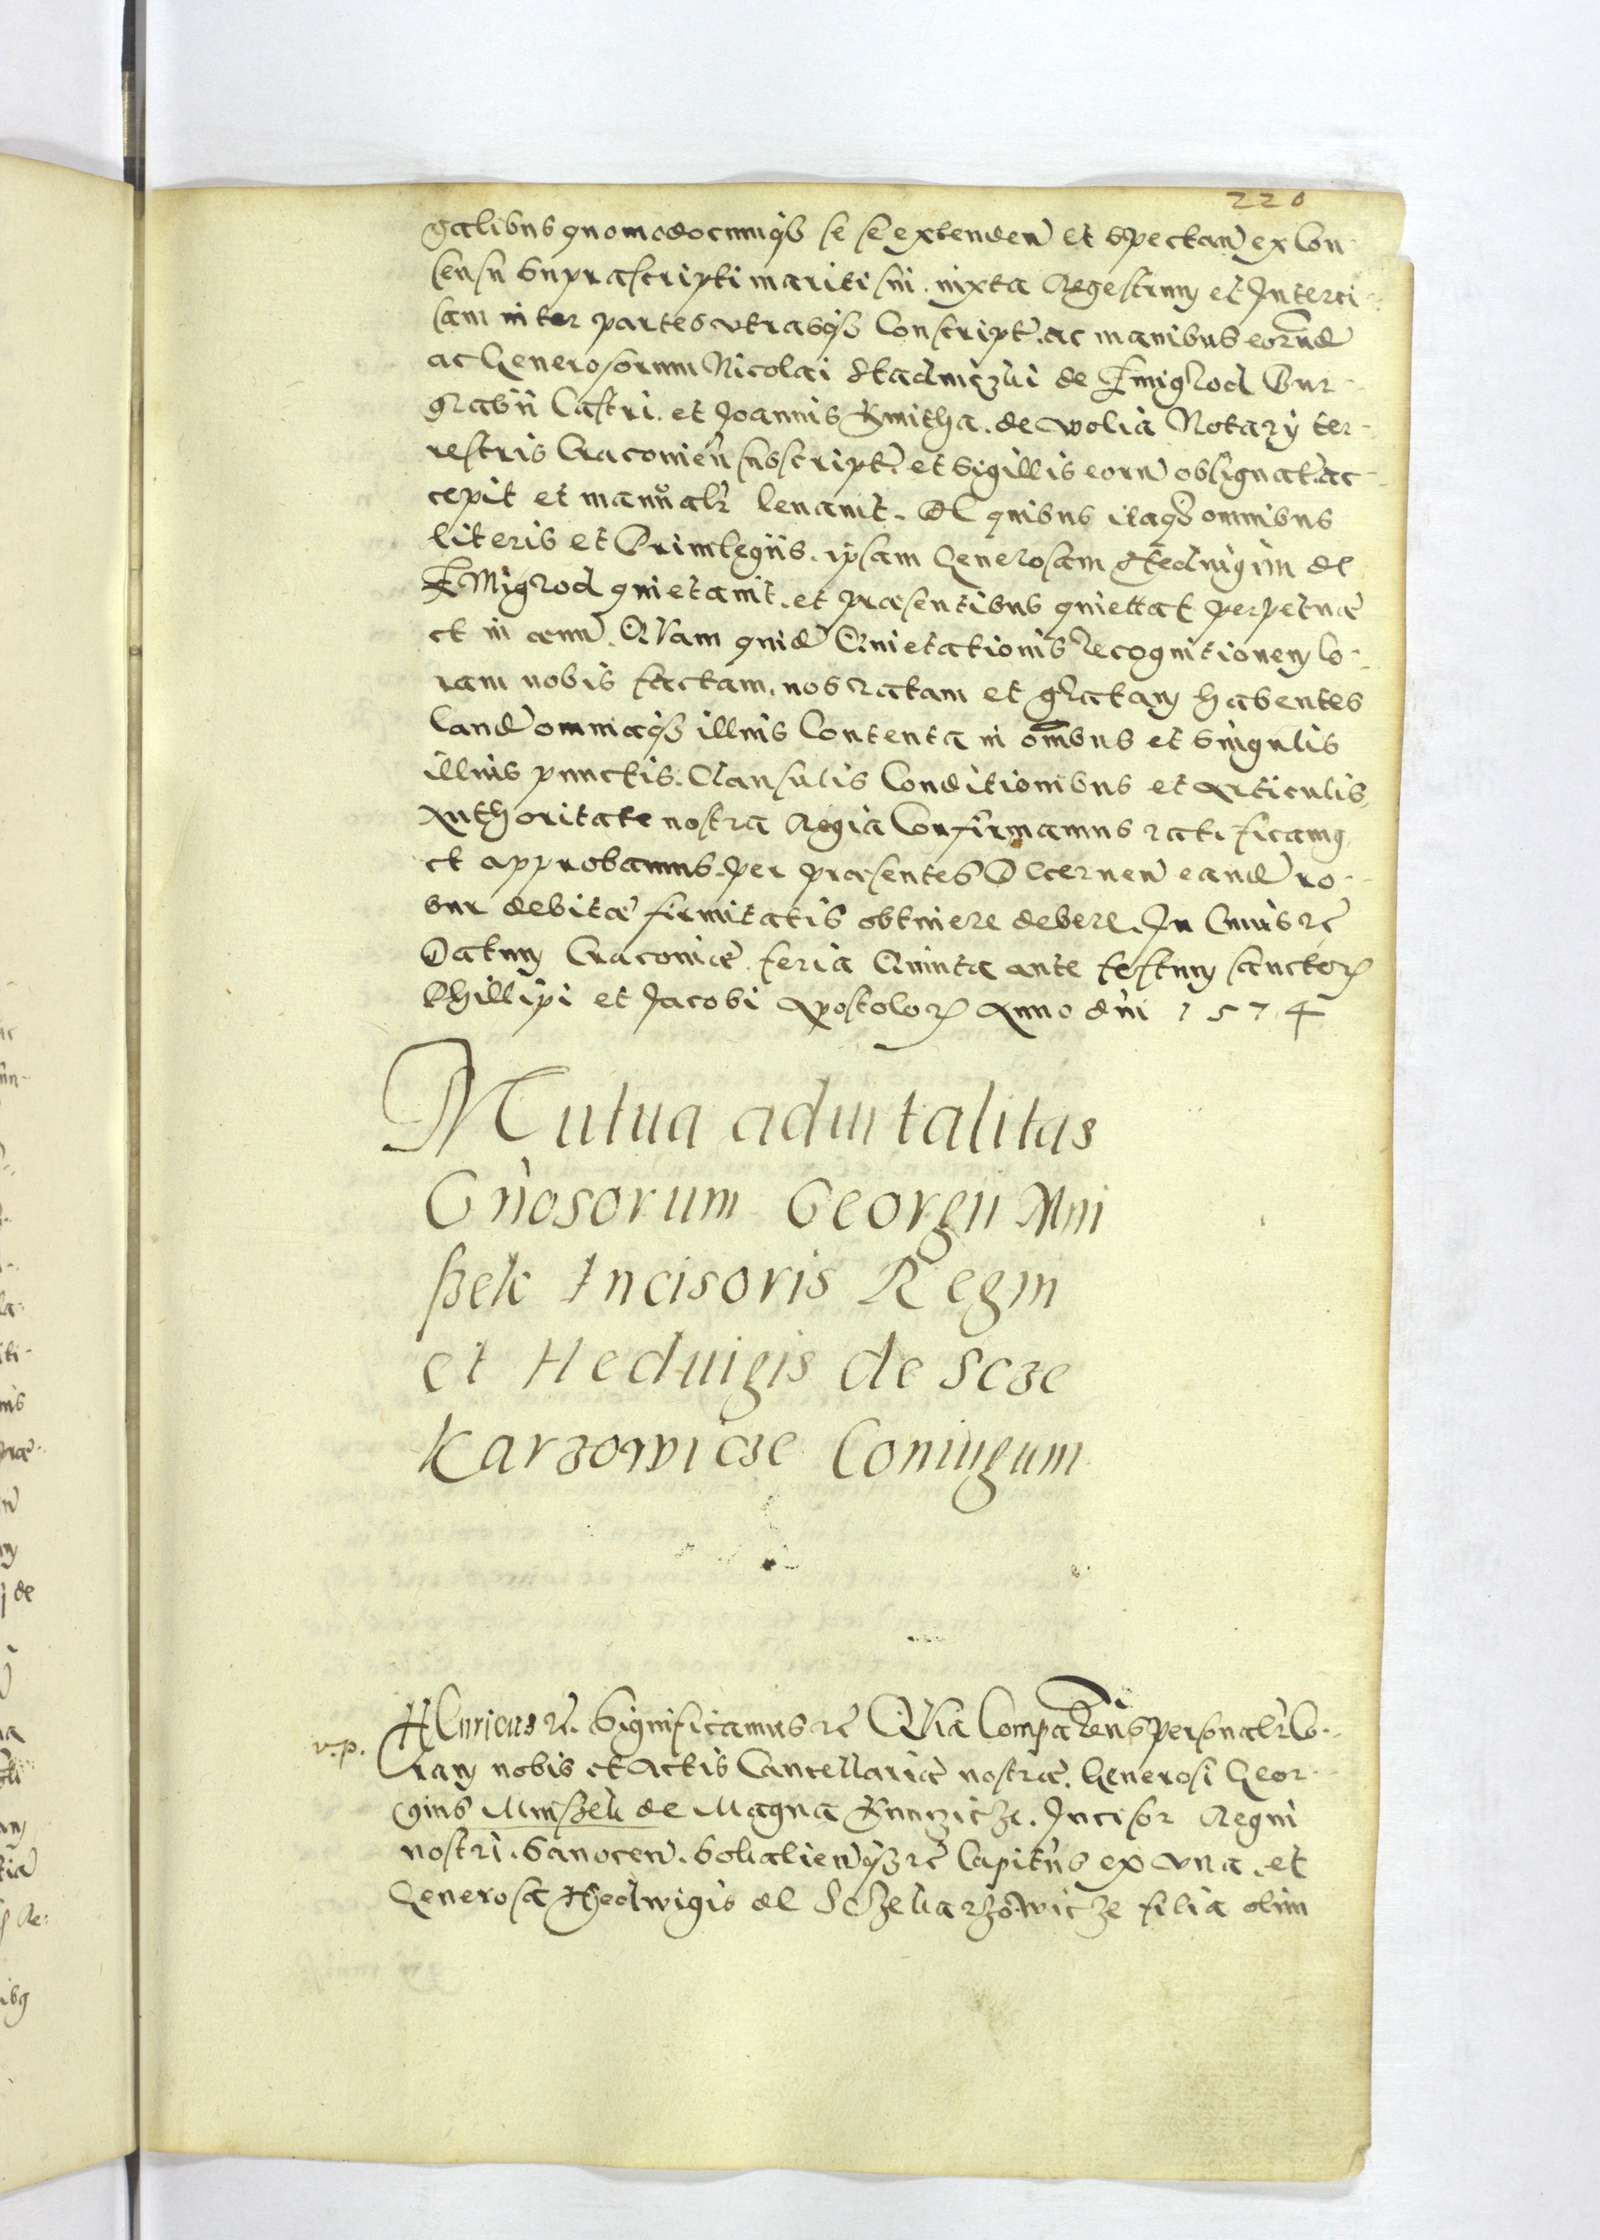 220
galibus quomodocunqȝ se se extendeñ et spectañ ex Con-
sensu suprascripti mariti sui. iuxta Regestrum et Interci-
sam inter partes utrasqȝ Conscript. ac manibus eorund
ac Generosorum Nicolai Stadniczki de Zmigrod Bur-
grabii Castri. et Joannis Kmitha. de Wolia Notarÿ ter-
restris Cracovień subscript. et Sigillis eorū obsignat. ac-
cepit et manualr levavit. De quibus itaqȝ omnibus
literis et Privilegiis. ipsam Generosam Hedvigim de
Zmigrod quietavit. et præsentibus quiettat perpetuæ
et in ævū. QVam quidē Quietationis recognitionem Co-
ram nobis factam. nos ratam et gratam habentes
Eand omniaqȝ illius Contenta in omnibus et singulis
illius punctis. Clausulis Conditionibus et Articulis
Authoritate nostra Regia Confirmamus ratificamus
et approbamus. per præsentes Decerneñ eand ro-
bur debitæ firmitatis obtinere debere. In Cuius rē
Datum Cracoviæ feria Quinta ante festum sanctor
Phillipi et Jacobi Apostolor Anno dñi 1574
Mutua advitalitas
Gñosorum Georgii Mni
szek Incisoris Regni
et Heduigis de Scze
Karzowicze Coniugum
v.p.
HEnricus rē. Significamus rē QVia Comparens personalr Co-
ram nobis et Actis Cancellariæ nostræ. Generosi Geor-
gius Mniszek de Magna Kunczicze. Incisor Regni
nostri. Sanoceñ. Sokalieñqȝ rē Capitñs ex una. et
Generosa Hedwigis de Sczekarzowicze filia olim